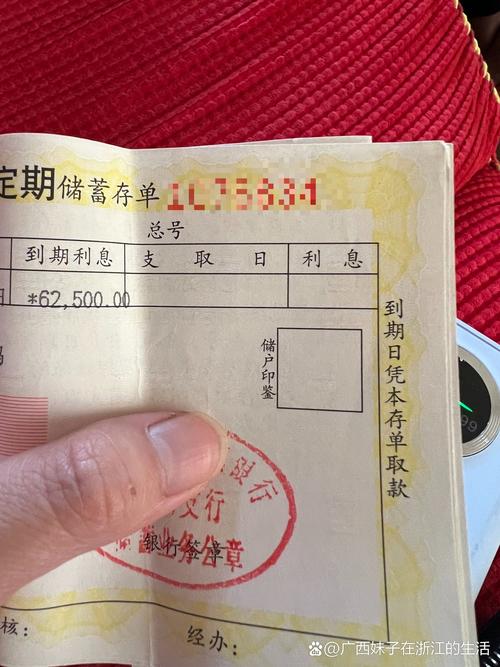 定期储蓄存单
总号
到期利息 支取日 利息
*62,500.00
到期日凭本存单取款
储户印鉴
银行
支行
业务公章
银行签章
核： 经办：
@广西妹子在浙江的生活